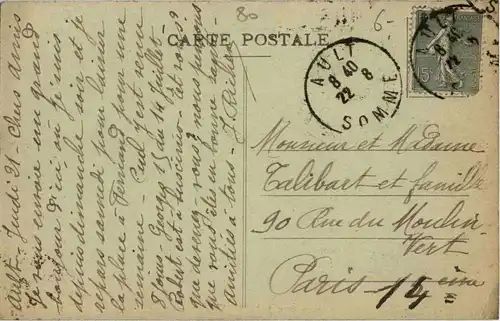 80
6-
CARTE POSTALE
AULT
8 40
22 8
SOMME
AULT
8 40
22 8
15c
Ault - Jeudi 21 - Chers Amis
Je vous envoie un grand
bonjour d'ici où je suis
depuis dimanche soir et je
repars samedi pour laisser
la place à Fernand pour une
semaine - Paul y est seul
8 jours - Georges 15 au 14 Juillet -
Robert est à - Et vous?
que devenez-vous? nous pensons
que vous êtes en bonne santé
amitiés à tous - J.
Monsieur et Madame
Talibart et famille
90 Rue du Moulin
Vert
Paris 14 eme